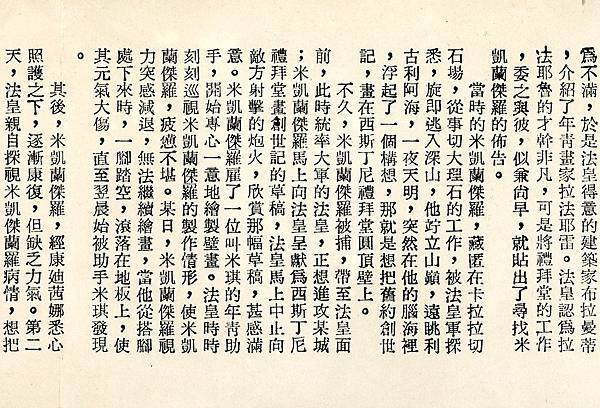 為不滿，於是法皇得意的建築家布拉曼蒂
，介紹了年青畫家拉法耶雷。法皇認為拉
法耶魯的才幹非凡，可是將禮拜堂的工作
，委之與彼，似兼尙早，就貼出了尋找米
凱蘭傑羅的佈告。
當時的米凱蘭傑羅，藏匿在卡拉拉切
石場，從事切大理石的工作，被法皇軍探
悉，旋即逃入深山，他竚立山巔，遠眺利
古利阿海，一夜天明，突然在他的腦海裡
，浮起了一個構想，那就是想把舊約創世
記，畫在西斯丁尼禮拜堂圓頂壁上。
不久，米凱蘭傑羅被捕，帶至法皇面
前，此時統率大軍的法皇，正想進攻某城
；米凱蘭傑羅馬上向法皇呈獻為西斯丁尼
禮拜堂畫創世記的草稿，法皇馬上中止向
敵方射擊的炮火，欣賞那幅草稿，甚感滿
意。米凱蘭傑羅雇了一位叫米琪的年青助
手，開始專心一意地繪製壁畫。法皇時時
刻刻巡視米凱蘭傑羅的製作情形，使米凱
蘭傑羅，疲憊不堪。某日，米凱蘭傑羅視
力突感減退，無法繼續繪畫，當他從搭腳
處下來時，一腳踏空，滾落在地板上，使
其元氣大傷，直至翌晨始被助手米琪發現
。
其後，米凱蘭傑羅，經康廸茜娜悉心
照護之下，逐漸康復，但缺乏力氣。第二
天，法皇親自探視米凱傑蘭羅病情，想把